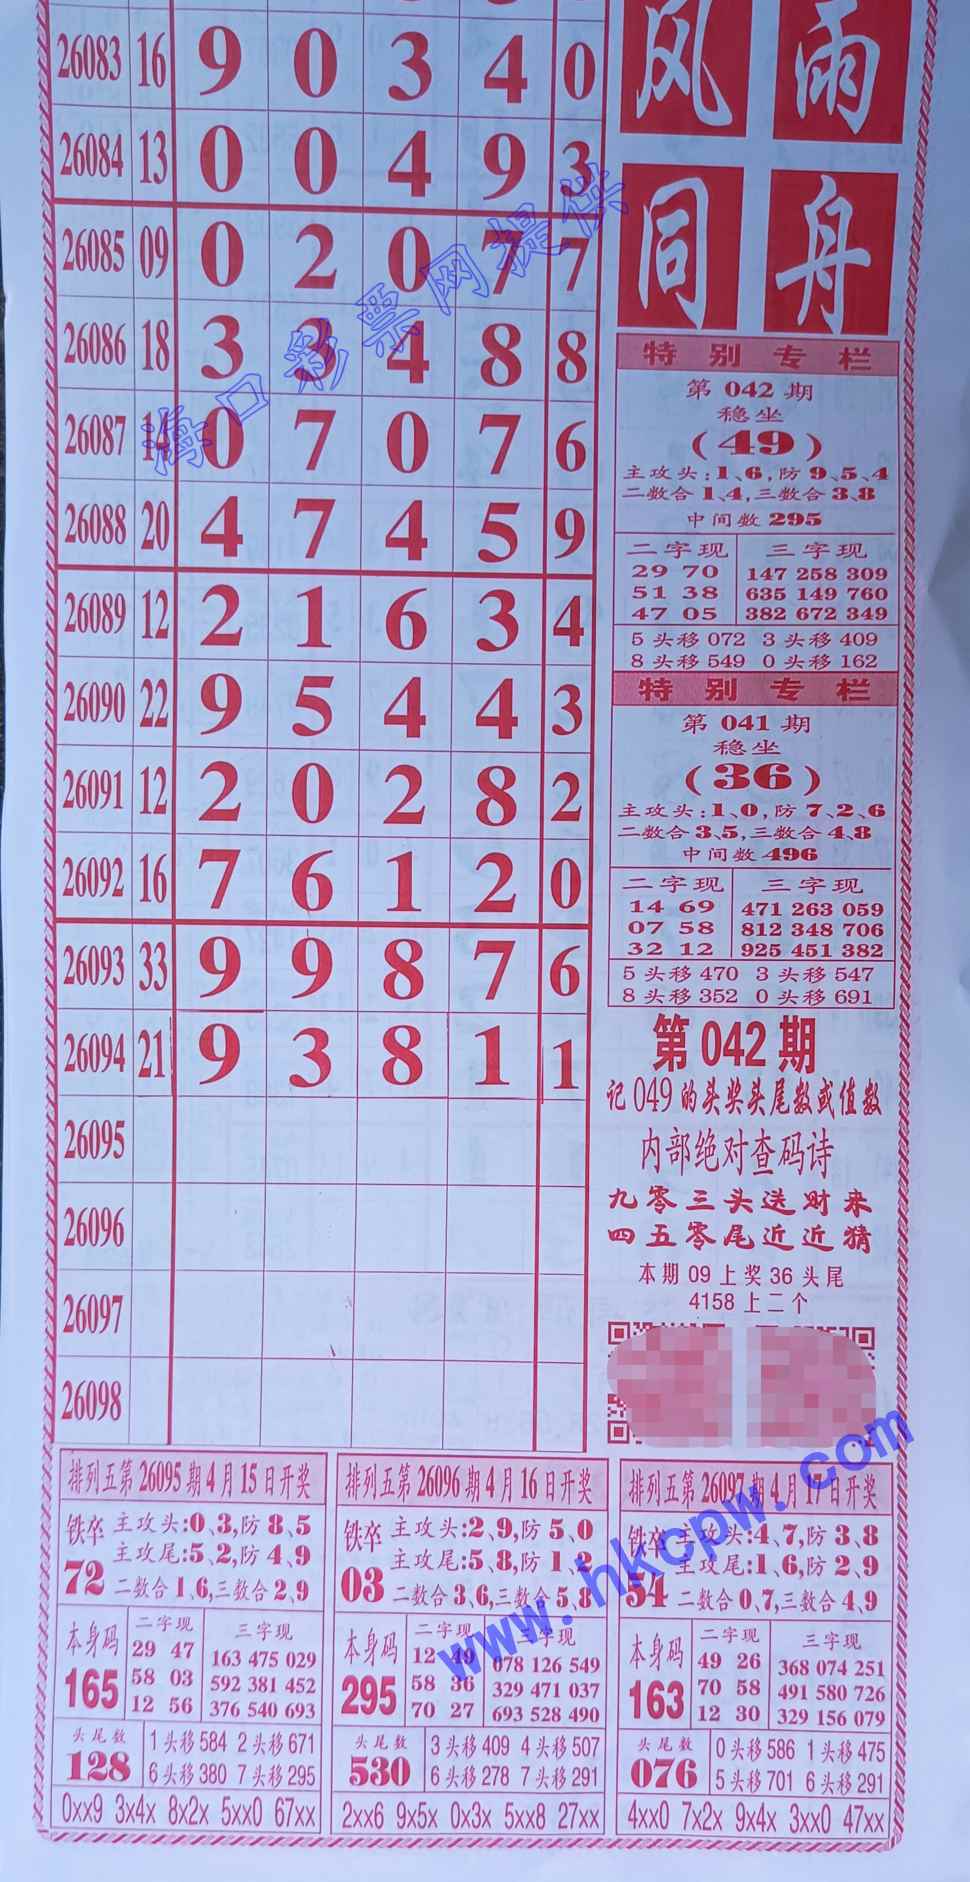 风 雨
同 舟
26083 16 9 0 3 4 0
26084 13 0 0 4 9 3
26085 09 0 2 0 7 7
26086 18 3 3 4 8 8
26087 14 0 7 0 7 6
26088 20 4 7 4 5 9
26089 12 2 1 6 3 4
26090 22 9 5 4 4 3
26091 12 2 0 2 8 2
26092 16 7 6 1 2 0
26093 33 9 9 8 7 6
26094 21 9 3 8 1 1
26095
26096
26097
26098
海口彩票网提供
特别专栏
第 042 期
稳坐
(49)
主攻头:1、6,防9、5、4
二数合1、4,三数合3、8
中间数 295
二字现 三字现
29 70 147 258 309
51 38 635 149 760
47 05 382 672 349
5头移072 3头移409
8头移549 0头移162
特别专栏
第 041 期
稳坐
(36)
主攻头:1、0,防7、2、6
二数合3、5,三数合4、8
中间数 496
二字现 三字现
14 69 471 263 059
07 58 812 348 706
32 12 925 451 382
5头移470 3头移547
8头移352 0头移691
第 042 期
记 049 的头奖头尾数或值数
内部绝对查码诗
九零三头送财来
四五零尾近近猜
本期 09 上奖 36 头尾
4158 上二个
排列五第26095期4月15日开奖
铁卒 72
主攻头:0、3,防8、5
主攻尾:5、2,防4、9
二数合1、6,三数合2、9
本身码 165
二字现 三字现
29 47 163 475 029
58 03 592 381 452
12 56 376 540 693
头尾数 128
1头移584 2头移671
6头移380 7头移295
0xx9 3x4x 8x2x 5xx0 67xx
排列五第26096期4月16日开奖
铁卒 03
主攻头:2、9,防5、0
主攻尾:5、8,防1、2
二数合3、6,三数合5、8
本身码 295
二字现 三字现
12 49 078 126 549
58 36 329 471 037
70 27 693 528 490
头尾数 530
3头移409 4头移507
6头移278 7头移291
2xx6 9x5x 0x3x 5xx8 27xx
排列五第26097期4月17日开奖
铁卒 54
主攻头:4、7,防3、8
主攻尾:1、6,防2、9
二数合0、7,三数合4、9
本身码 163
二字现 三字现
49 26 368 074 251
70 58 491 580 726
12 30 329 156 079
头尾数 076
0头移586 1头移475
5头移701 6头移291
4xx0 7x2x 9x4x 3xx0 47xx
www.hkcpw.com